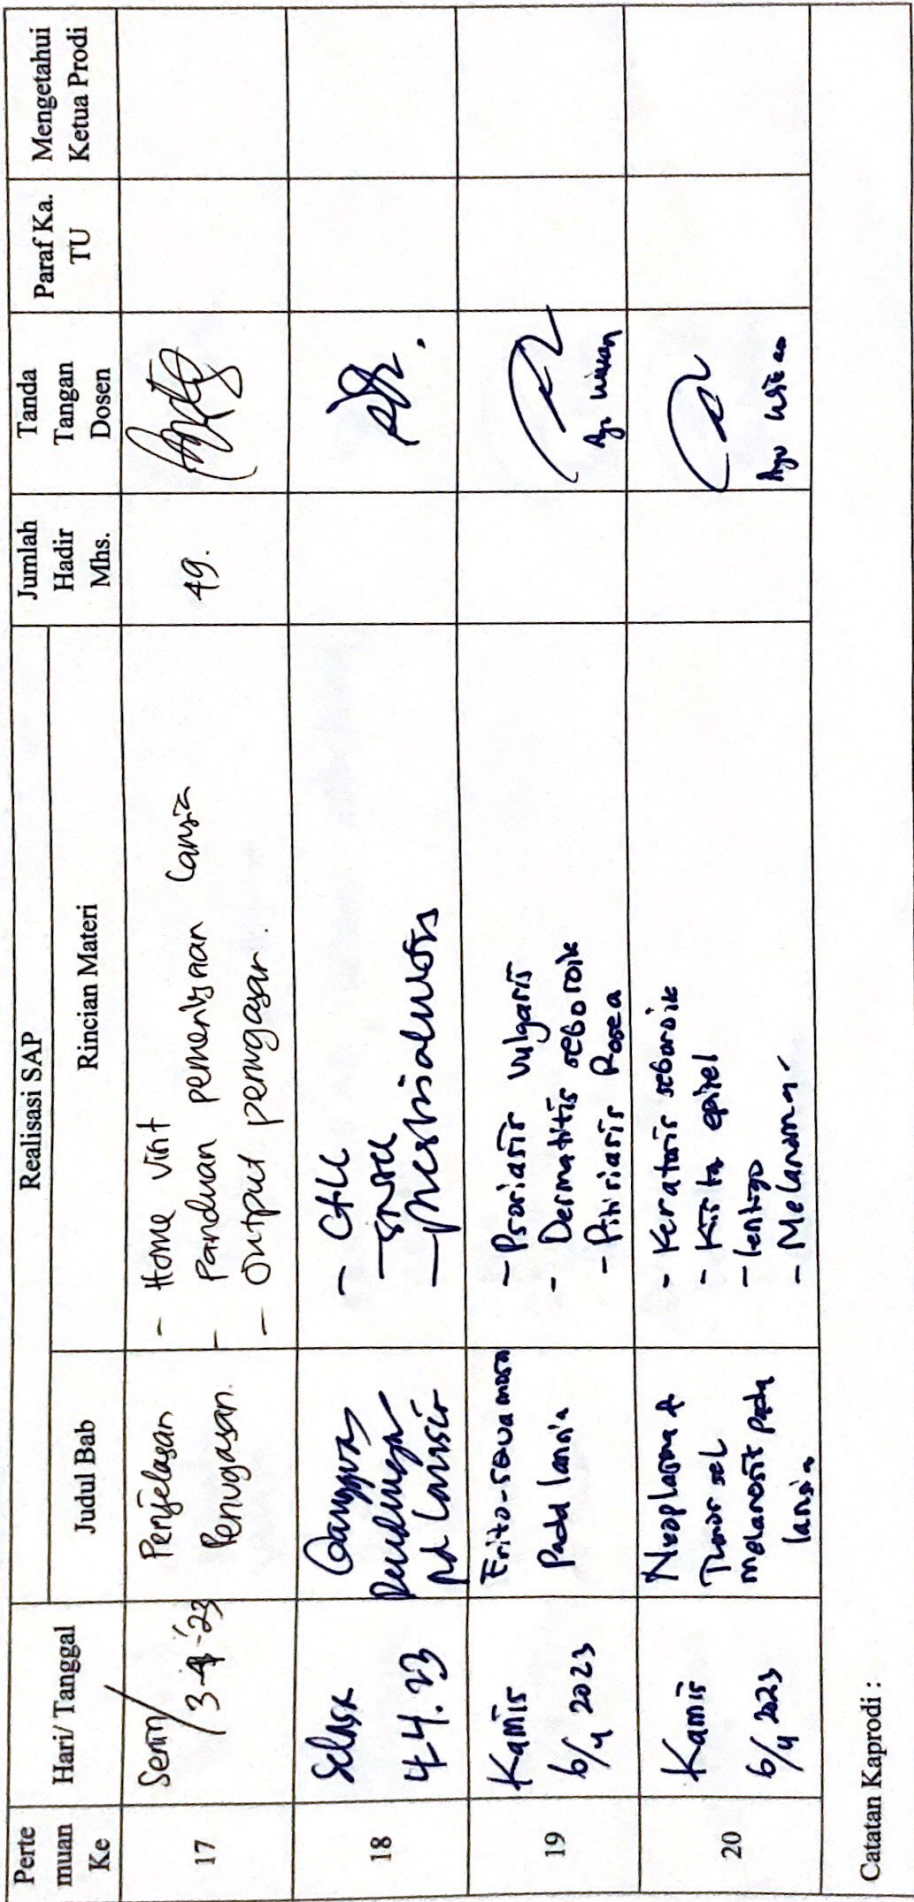 Perte
muan
Ke
Hari/ Tanggal
Realisasi SAP
Judul Bab
Rincian Materi
Jumlah
Hadir
Mhs.
Tanda
Tangan
Dosen
Paraf Ka.
TU
Mengetahui
Ketua Prodi
17
Senin/
3-4-'23
Penjelasan
Penugasan.
- Home Visit
- Panduan pemeriksaan Lansia
- Output penugasan.
49.
18
Selasa
4.4.23
Gangguan
Pendengaran
pd Lansia
- Presbiakusis
19
Kamis
6/4 2023
Erito-squamosa
Pada lansia
- Psoriasis vulgaris
- Dermatitis seboroik
- Pitiriasis Rosea
Ayu Wikan
20
Kamis
6/4 2023
Neoplasma &
Tumor sel
melanosit pada
lansia
- Keratosis seboroik
- Kista epitel
- lentigo
- Melanoma
Ayu Wikan
Catatan Kaprodi :